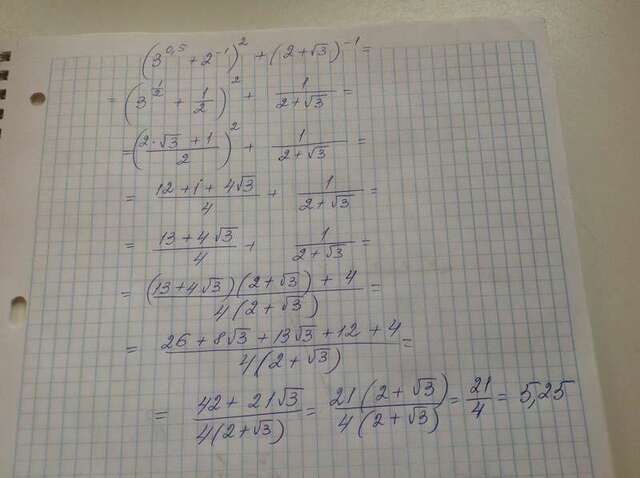 (3^0,5 + 2^-1)^2 + (2+√3)^-1 =
= (3^(1/2) + 1/2)^2 + 1/(2+√3) =
= ((2·√3 + 1)/2)^2 + 1/(2+√3) =
= (12 + 1 + 4√3)/4 + 1/(2+√3) =
= (13 + 4√3)/4 + 1/(2+√3) =
= ((13+4√3)(2+√3) + 4)/(4(2+√3)) =
= (26 + 8√3 + 13√3 + 12 + 4)/(4(2+√3)) =
= (42 + 21√3)/(4(2+√3)) = (21(2+√3))/(4(2+√3)) = 21/4 = 5,25